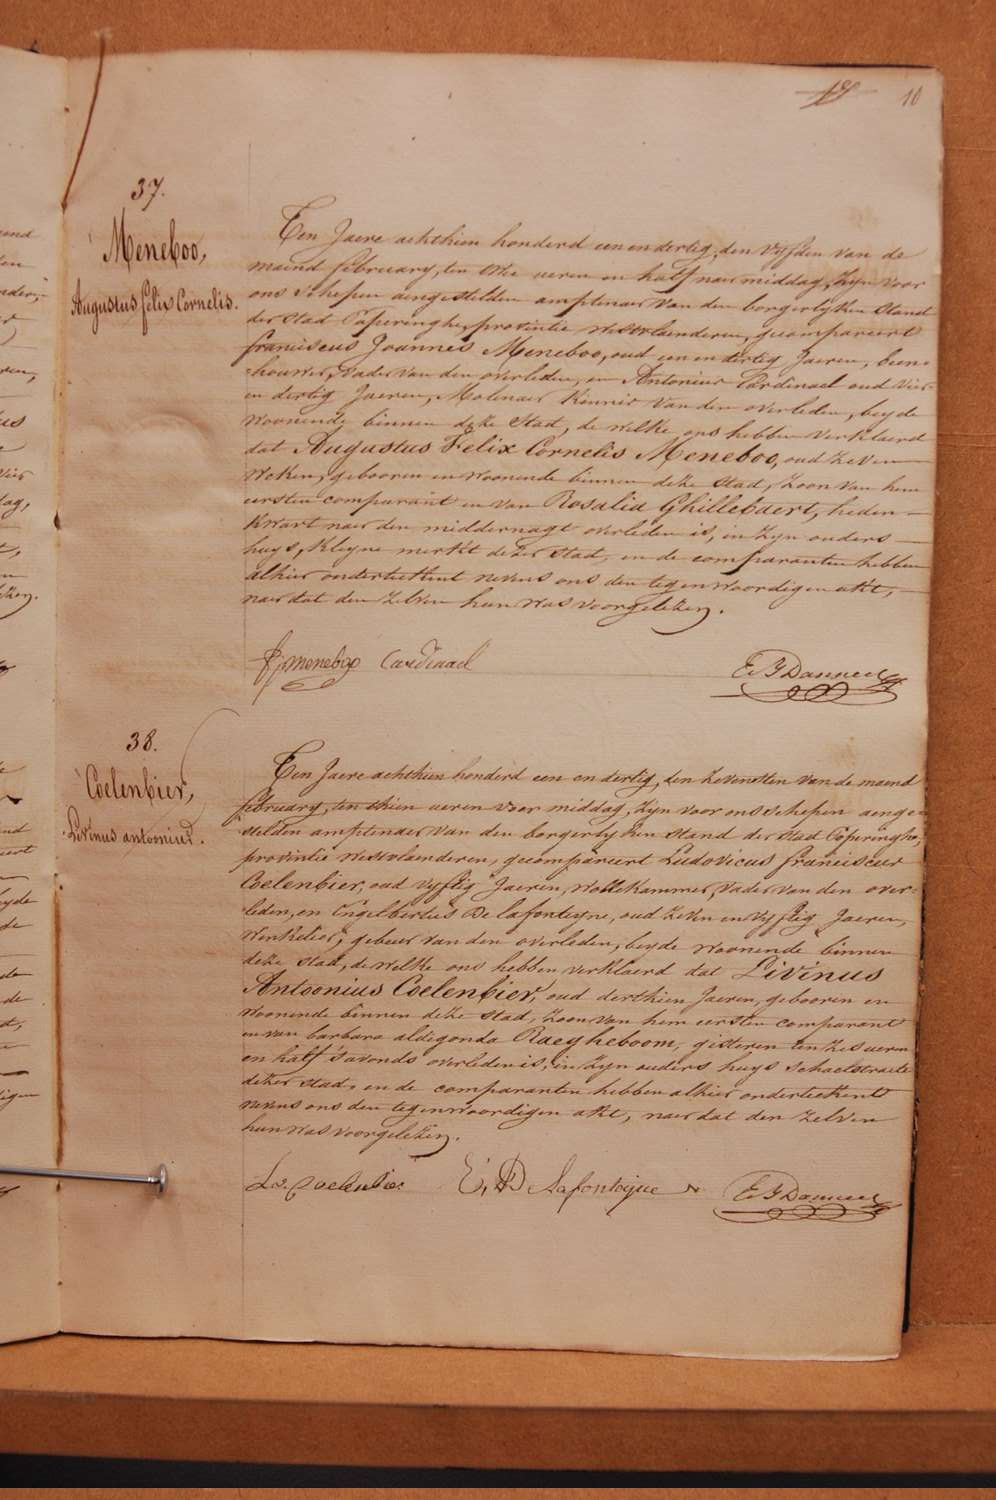 10
37.
Meneboo,
Augustus felix Cornelis.
Ten Jaere achthien honderd een en dertig, den vyfden van de
maend february, ten twee ueren en half naer middag, zyn voor
ons schepen aengestelden amptenaer van den borgerlyken stand
der stad Poperinghe, provintie westvlaenderen, gecompareert
franciscus Joannes Meneboo, oud een en dertig Jaeren, been-
houwer, vader van den overleden, en Antonius Cardinael oud vier-
en dertig Jaeren, Molenaer kennis van den overleden, beyde
woonende binnen deze stad, de welke ons hebben verklaerd
dat Augustus Felix Cornelis Meneboo, oud zeven
weken, gebooren en woonende binnen deze stad, zoon van hem
eersten comparant en van Rosalia Ghillebaert, heden
kwart naer den middernagt overleden is, in zyn ouders
huys, kleyne merkt dezer stad, en de comparanten hebben
alhier onderteekent nevens ons den tegenwoordigen akt,
naer dat den zelven hun was voorgelezen.
fj meneboo Cardinael
38.
Coelenbier,
Livinus antoonius.
Ten Jaere achthien honderd een en dertig, den zevensten van de maend
february, ten thien ueren voor middag, zyn voor ons schepen aenge-
stelden amptenaer van den borgerlyken stand der stad Poperinghe,
provintie westvlaenderen, gecompareert Ludovicus franciscus
Coelenbier, oud vyftig Jaeren, wollekammer, vader van den over-
leden, en Engelbertus De lafonteyne, oud zeven en vyftig Jaeren,
winkelier, gebeur van den overleden, beyde woonende binnen
deze stad, de welke ons hebben verklaerd dat Livinus
Antoonius Coelenbier, oud derthien Jaeren, gebooren en
woonende binnen deze stad, zoon van hem eersten comparant
en van barbara aldegonda Raegheboom, gisteren ten zes ueren
en half s'avonds overleden is, in zyn ouders huys schaelstraete
dezer stad, en de comparanten hebben alhier onderteekent
nevens ons den tegenwoordigen akt, naer dat den zelven
hun was voorgelezen.
Lo. Coelenbier E, De Lafonteyne